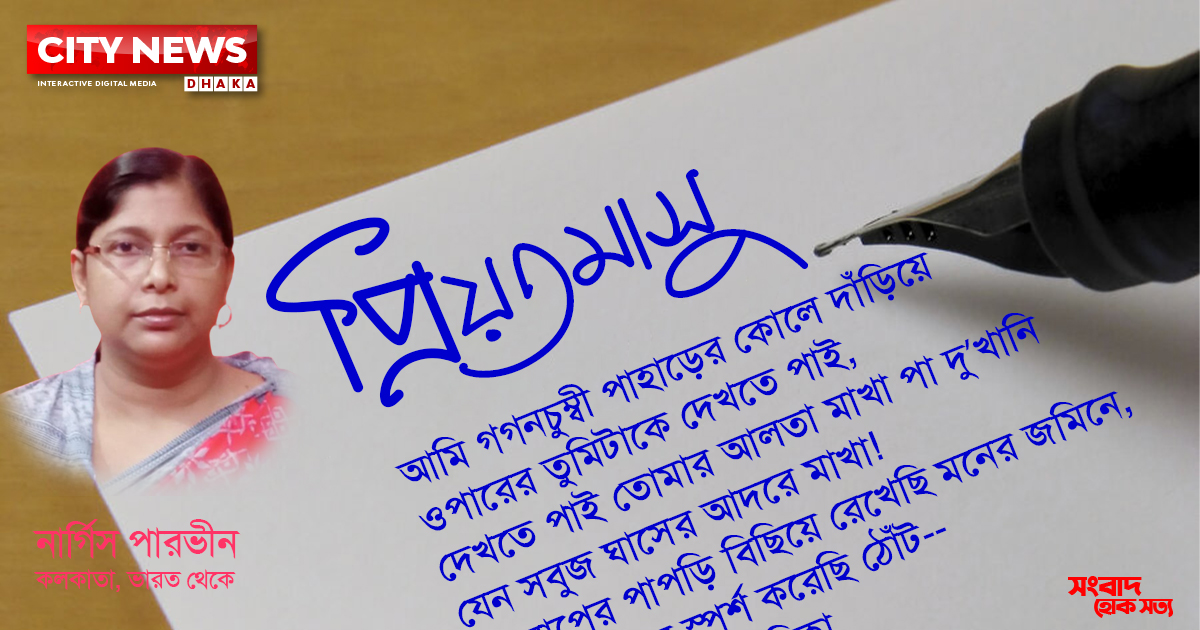 CITY NEWS
INTERACTIVE DIGITAL MEDIA
DHAKA
প্রিয়তমাসু
আমি গগনচুম্বী পাহাড়ের কোলে দাঁড়িয়ে
ওপারের তুমিটাকে দেখতে পাই,
দেখতে পাই তোমার আলতা মাখা পা দু'খানি
যেন সবুজ ঘাসের আদরে মাখা!
পাপড়ি বিছিয়ে রেখেছি মনের জমিনে,
স্পর্শ করেছি ঠোঁট--
নার্গিস পারভীন
কলকাতা, ভারত থেকে
সংবাদ
হোক সত্য